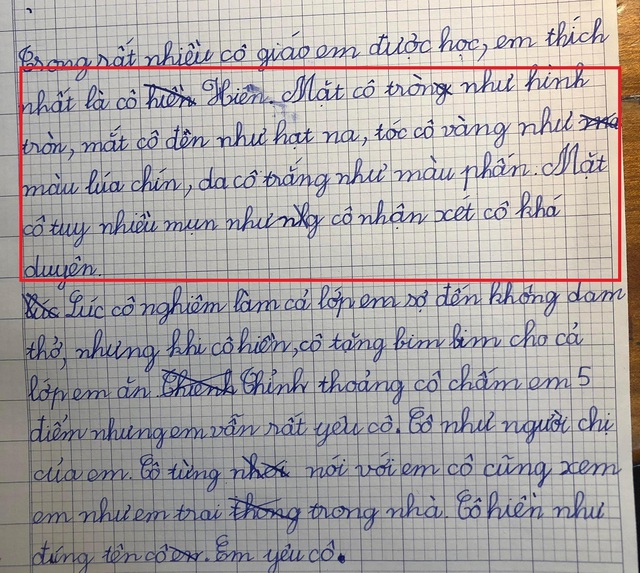 Trong rất nhiều cô giáo em được học, em thích
nhất là cô hiền Hiền. Mắt cô tròng như hình
tròn, mắt cô đên như hạt na, tóc cô vàng như
màu lúa chín, da cô trắng như màu phấn. Mặt
cô tuy nhiều mụn như cô nhận xét cô khá
duyên.
Lúc Lúc cô nghiêm lâm cả lớp em sợ đến không dam
thở, nhưng khi cô hiền, cô tặng bim bim cho cả
lớp em ăn. Thỉnh thoảng cô chấm em 5
điểm nhưng em vẫn rất yêu cô. Cô như người chị
của em. Cô từng nói với em cô cũng xem
em như em trai thong trong nhà. Cô hiền như
đúng tên cô. Em yêu cô.